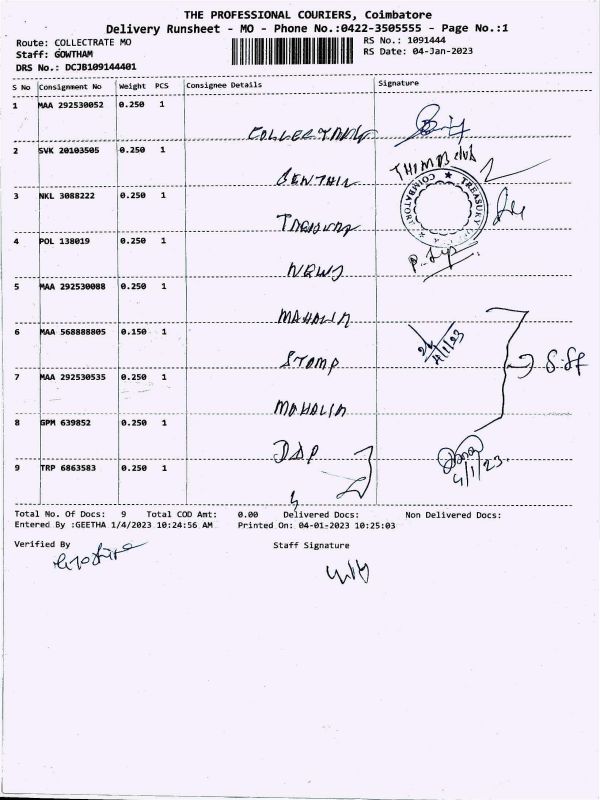 THE PROFESSIONAL COURIERS, Coimbatore
Delivery Runsheet - MO - Phone No.:0422-3505555 - Page No.:1
Route: COLLECTRATE MO
RS No.: 1091444
Staff: GOWTHAM
RS Date: 04-Jan-2023
DRS No.: DCJB109144401
S No Consignment No Weight PCS Consignee Details Signature
1 MAA 292530052 0.250 1
2 SVK 20103505 0.250 1
3 NKL 3088222 0.250 1
TREASURY
COIMBATORE
4 POL 138019 0.250 1
NEWS
5 MAA 292530088 0.250 1
MAHALIR
6 MAA 568888805 0.150 1
4/1/23
STAMP
7 MAA 292530535 0.250 1
MAHALIR
8 GPM 639852 0.250 1
DDP
9 TRP 6863583 0.250 1
4/1/23.
Total No. Of Docs: 9 Total COD Amt: 0.00 Delivered Docs: Non Delivered Docs:
Entered By :GEETHA 1/4/2023 10:24:56 AM Printed On: 04-01-2023 10:25:03
Verified By Staff Signature